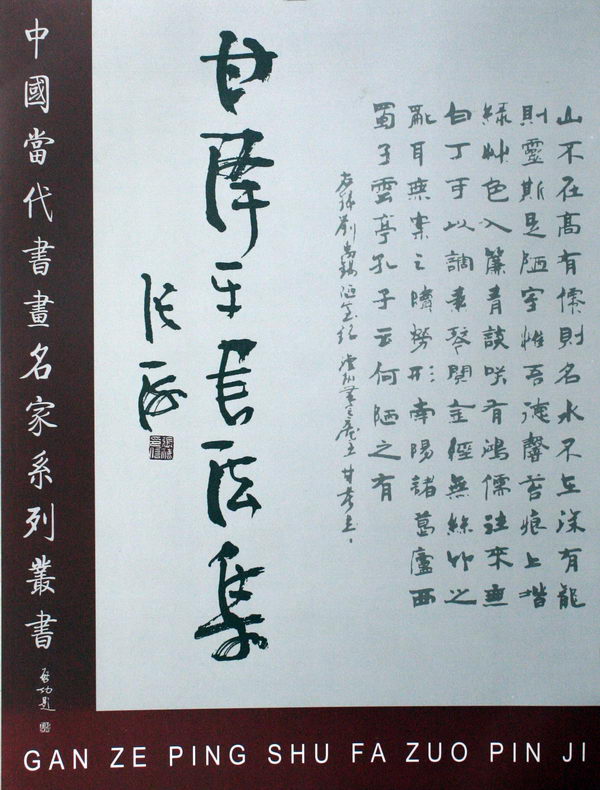 山不在高有僊則名水不在深有龍
則靈斯是陋室惟吾德馨苔痕上堦
綠艸色入簾青談咲有鴻儒往來無
白丁可以調素琴閱金經無絲竹之
亂耳無案牘之勞形南陽諸葛廬西
蜀子雲亭孔子云何陋之有
右錄劉禹錫陋室銘
甘澤平書法集
張海
中國當代書畫名家系列叢書
啟功題
GAN ZE PING SHU FA ZUO PIN JI